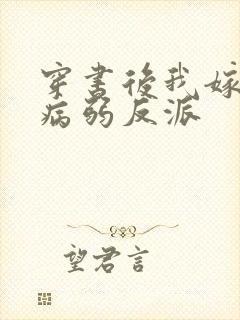 穿书後我嫁
病弱反派
望君言